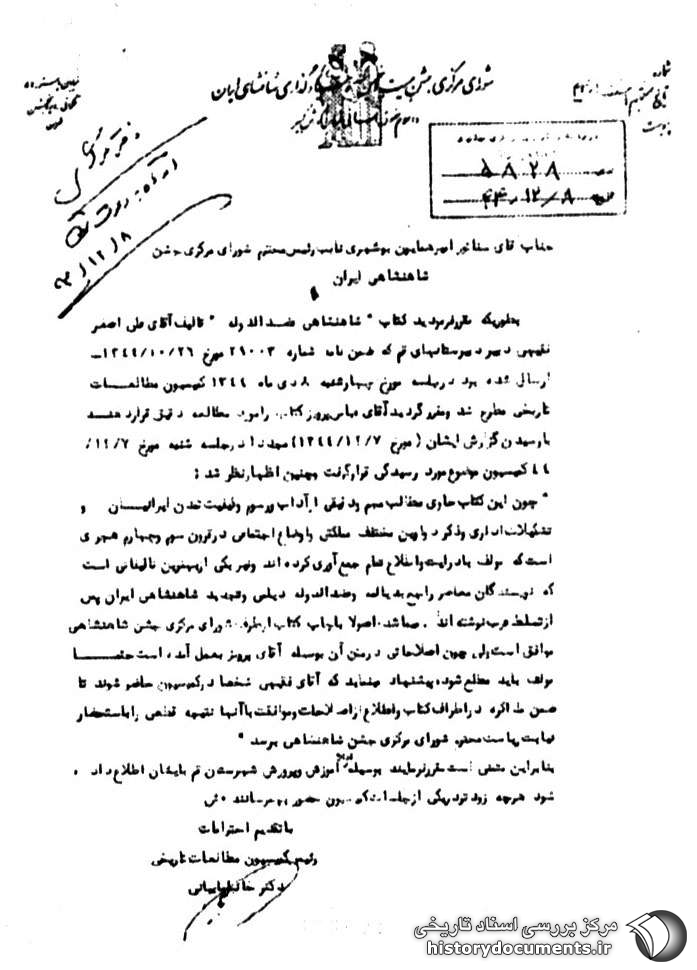 شورای مرکزی جشن
شاهنشاهی ایران
شماره
تاریخ
پیوست
۵۸۲۸
۴۴/۱۲/۸
۴۴/۱۲/۸
جناب آقای سناتور امیرهمایون بوشهری نایب رئیس محترم شورای مرکزی جشن
شاهنشاهی ایران
بطوریکه مقرر فرمودید کتاب " شاهنشاهی عضدالدوله " تالیف آقای علی اصغر
فقیهی دبیر دبیرستانهای قم که ضمن نامه شماره ۲۹۰۰۳ مورخ ۱۳۴۴/۱۰/۲۶
ارسال شده بود در جلسه مورخ چهارشنبه ۸ دی ماه ۱۳۴۴ کمیسیون مطالعات
تاریخی مطرح شد و مقرر گردید آقای عباس پرویز کتاب را مورد مطالعه دقیق قرار دهند
با رسیدن گزارش ایشان (مورخ ۱۳۴۴/۱۲/۷) مجددا در جلسه شنبه مورخ ۱۲/۷/
۴۴ کمیسیون مجموع مورد رسیدگی قرار گرفت و چنین اظهار نظر شد :
" چون این کتاب حاوی مطالب مهم و دقیقی از آداب و رسوم و کیفیت تمدن ایرانیان و
تشکیلات اداری و ذکر دواوین مختلف مملکتی و اوضاع اجتماعی در قرون سوم و چهارم هجری
است که مولف با درایت و اطلاع تمام جمع آوری کرده اند و نیز یکی از بهترین تالیفاتی است
که نویسندگان معاصر راجع به دیالمه و عضدالدوله دیلمی و تجدید شاهنشاهی ایران پس
از تسلط عرب نوشته اند . اصولا با چاپ کتاب از طرف شورای مرکزی جشن شاهنشاهی
موافق است ولی چون اصلاحاتی در متن آن بوسیله آقای پرویز بعمل آمده است حتما
مولف باید مطلع شود، پیشنهاد مینماید که آقای فقیهی شخصا در کمیسیون حاضر شوند تا
ضمن مذاکره در اطراف کتاب و اطلاع از اصلاحات و موافقت با آنها نتیجه قطعی را باستحضار
نیابت ریاست محترم شورای مرکزی جشن شاهنشاهی برسد "
بنابراین متمنی است مقرر فرمایند بوسیله آموزش و پرورش شهرستان قم بایشان اطلاع داده
شود هرچه زودتر در یکی از جلسات کمیسیون حضور بهم رسانند
با تقدیم احترامات
رئیس کمیسیون مطالعات تاریخی
دکتر خانبابا بیانی
مرکز بررسی اسناد تاریخی
historydocuments.ir